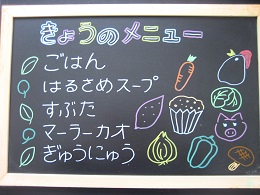 きょうのメニュー
ごはん
はるさめスープ
すぶた
マーラーカオ
ぎゅうにゅう